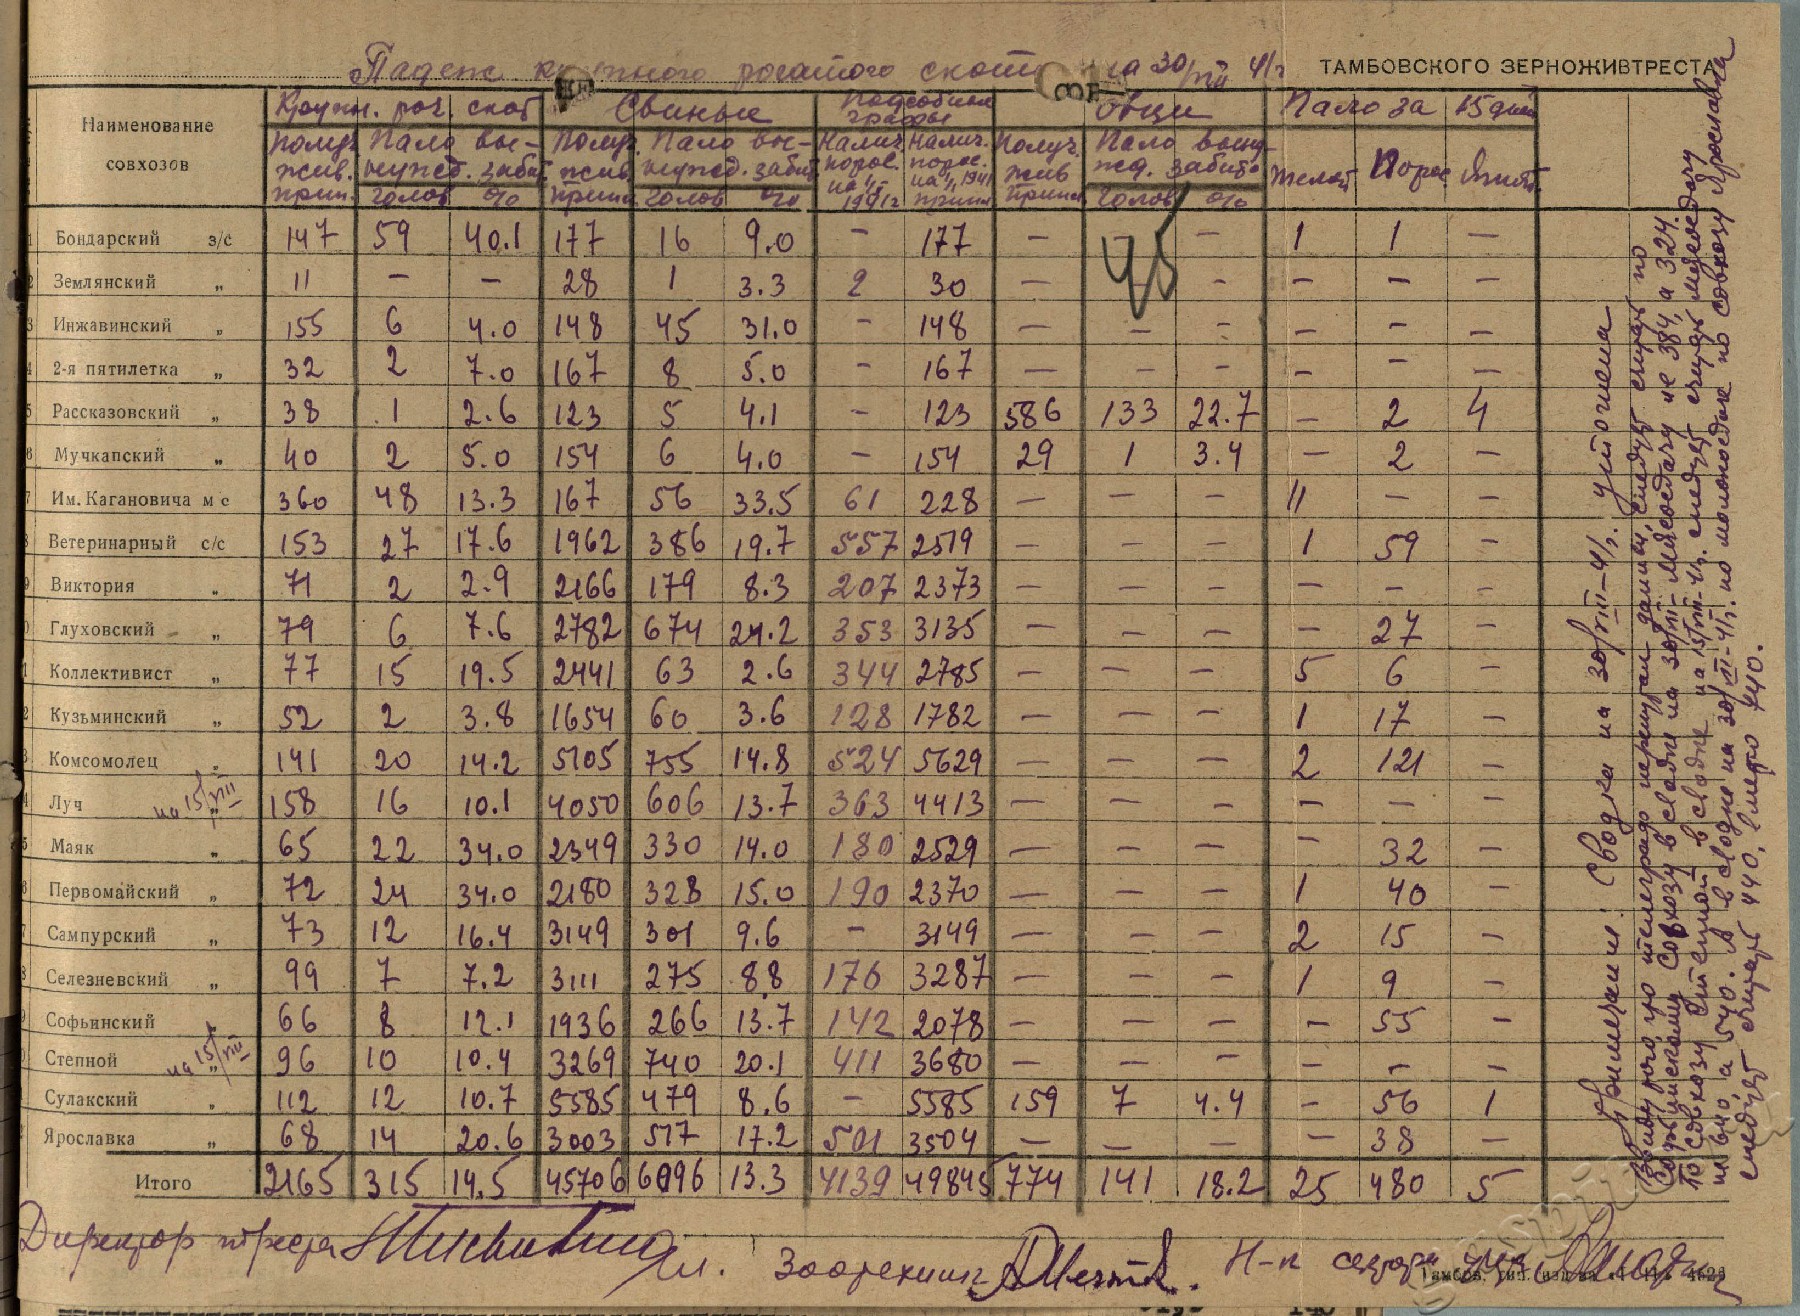 Падеж крупного рогатого скот на 30/VIII 41г ТАМБОВСКОГО ЗЕРНОЖИВТРЕСТА
Наименование совхозов | Крупн. рог. скот | Свиньи | Подсобные графы | Овцы | Пало за 15 дней
Получ. жив. прип. | Пало вы-нужд. забит голов % | Получ. жив. припл. | Пало вы-нужд. забит голов % | Налич. порос. на 1/I 1941г | Налич. порос. на 1/I 1941 припл | Получ. жив припл | Пало вынужд. забито голов % | Телят | Порос | Ягнят.
45
Бондарский з/с 147 59 40.1 177 16 9.0 – 177 – – 1 1 –
Землянский „ 11 – – 28 1 3.3 2 30 – – – – –
Инжавинский „ 155 6 4.0 148 45 31.0 – 148 – – – – – –
2-я пятилетка „ 32 2 7.0 167 8 5.0 – 167 – – – – – –
Рассказовский „ 38 1 2.6 123 5 4.1 – 123 586 133 22.7 – 2 4
Мучкапский „ 40 2 5.0 154 6 4.0 – 154 29 1 3.4 – 2 –
Им. Кагановича м с 360 48 13.3 167 56 33.5 61 228 – – – 11 – –
Ветеринарный с/с 153 27 17.6 1962 386 19.7 557 2519 – – – 1 59 –
Виктория „ 71 2 2.9 2166 179 8.3 207 2373 – – – – – –
Глуховский „ 79 6 7.6 2782 674 24.2 353 3135 – – – – 27 –
Коллективист „ 77 15 19.5 2441 63 2.6 344 2785 – – – 5 6 –
Кузьминский „ 52 2 3.8 1654 60 3.6 128 1782 – – – 1 17 –
Комсомолец „ 141 20 14.2 5105 755 14.8 524 5629 – – – 2 121 –
Луч на 15/VIII „ 158 16 10.1 4050 606 13.7 363 4413 – – – – – –
Маяк „ 65 22 34.0 2349 330 14.0 180 2529 – – – – 32 –
Первомайский „ 72 24 34.0 2180 328 15.0 190 2370 – – – 1 40 –
Сампурский „ 73 12 16.4 3149 301 9.6 – 3149 – – – 2 15 –
Селезневский „ 99 7 7.2 3111 275 8.8 176 3287 – – – 1 9 –
Софьинский 66 8 12.1 1936 266 13.7 142 2078 – – – – 55 –
Степной на 15/VIII „ 96 10 10.4 3269 740 20.1 411 3680 – – – – – –
Сулакский „ 112 12 10.7 5585 479 8.6 – 5585 159 7 4.4 – 56 1
Ярославка „ 68 14 20.6 3003 517 17.2 501 3504 – – – – 38 –
Итого 2165 315 14.5 45706 6096 13.3 4139 49845 774 141 18.2 25 480 5
Примечание: Сводка на 30/VIII-41г. уточнена
Ввиду того, что телеграф перепутал данные, следует считать по
совхозу в сводке на 30/VIII- мясосдачу не 384, а 324.
По совхозу Степной в сводке на 15/VIII-41г. следует считать мясосдачу
не 640, а 540. И в сводке на 30/VIII-41г. по молокосдаче по совхозу Ярославка
следует считать 440, вместо 740.
Директор треста
Гл. Зоотехник
Н-к сектора